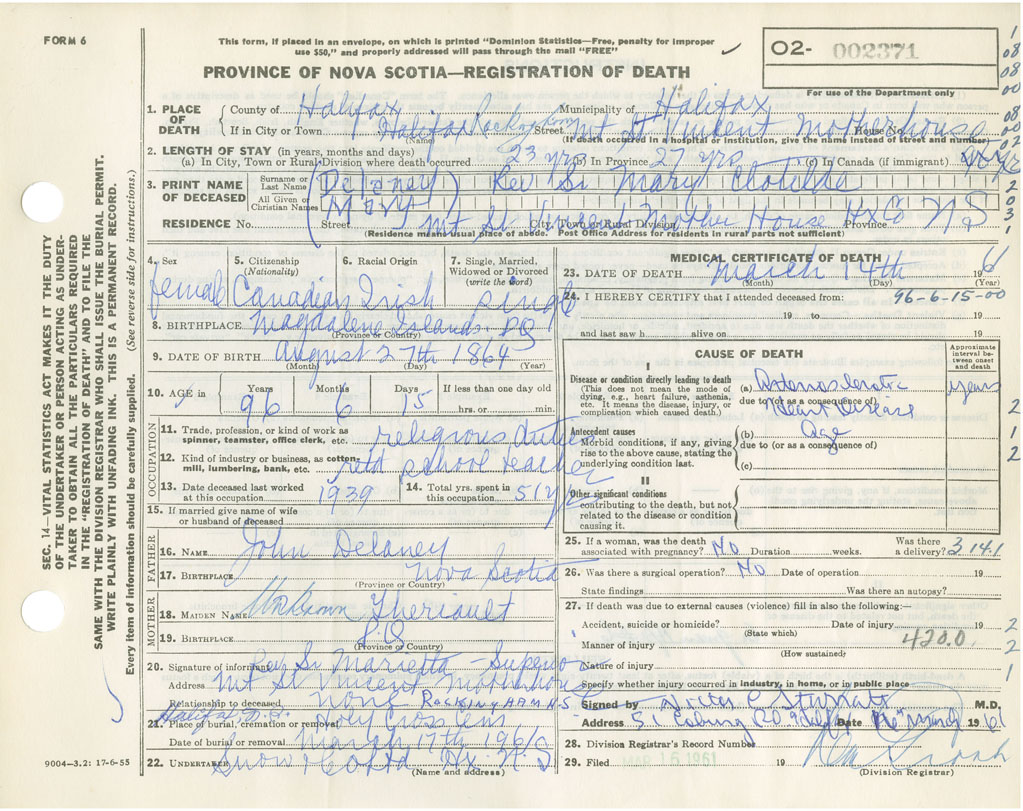 FORM 6
This form, if placed in an envelope, on which is printed "Dominion Statistics—Free, penalty for improper
use $50," and properly addressed will pass through the mail "FREE"
02- 002371
For use of the Department only
PROVINCE OF NOVA SCOTIA—REGISTRATION OF DEATH
1. PLACE OF DEATH
County of Halifax Municipality of Halifax
If in City or Town Halifax Rockingham Street Mt St Vincent Motherhouse House No.
(Name) (If death occurred in a hospital or institution, give the name instead of street and number)
2. LENGTH OF STAY (in years, months and days)
(a) In City, Town or Rural Division where death occurred 23 yrs (b) In Province 27 yrs (c) In Canada (if immigrant)
3. PRINT NAME OF DECEASED
Surname or Last Name (Delaney) Rev Sr Mary Clotilda
All Given or Christian Names Mary
RESIDENCE No. Street Mt St Vincent Mother House City, Town or Rural Division Hx Co Province N S
(Residence means usual place of abode. Post Office Address for residents in rural parts not sufficient)
4. Sex female
5. Citizenship (Nationality) Canadian
6. Racial Origin Irish
7. Single, Married, Widowed or Divorced (write the word) single
8. BIRTHPLACE Magdalene Islands PQ
(Province or Country)
9. DATE OF BIRTH August 27th 1864
(Month) (Day) (Year)
10. AGE in Years 96 Months 6 Days 15 If less than one day old
hrs. or min.
OCCUPATION
11. Trade, profession, or kind of work as
spinner, teamster, office clerk, etc. religious duties
12. Kind of industry or business, as cotton-
mill, lumbering, bank, etc. retd school teacher
13. Date deceased last worked
at this occupation 1939
14. Total yrs. spent in
this occupation 51 yrs
15. If married give name of wife
or husband of deceased
FATHER
16. NAME John Delaney
17. BIRTHPLACE Nova Scotia
(Province or Country)
MOTHER
18. MAIDEN NAME Unknown Theriault
19. BIRTHPLACE P.Q
(Province or Country)
20. Signature of informant Rev Sr Marietta - Superior
Address Mt St Vincent Motherhouse
Relationship to deceased None ROCKINGHAM N.S
Halifax N.S.
21. Place of burial, cremation or removal Holy Cross Cem
Date of burial or removal March 17th 1961
22. UNDERTAKER Snow & Co Ltd Hx N.S
(Name and address)
9004—3.2: 17-6-55
MEDICAL CERTIFICATE OF DEATH
23. DATE OF DEATH March 14th 1961
(Month) (Day) (Year)
24. I HEREBY CERTIFY that I attended deceased from: 96-6-15-00
19 to 19
and last saw h alive on 19
CAUSE OF DEATH
Approximate interval between onset and death
I
Disease or condition directly leading to death
(This does not mean the mode of
dying, e.g., heart failure, asthenia,
etc. It means the disease, injury, or
complication which caused death.)
(a) Arteriosclerotic years
due to (or as a consequence of)
Heart Disease
Antecedent causes
Morbid conditions, if any, giving
rise to the above cause, stating the
underlying condition last.
(b) Age
due to (or as a consequence of)
(c)
II
Other significant conditions
contributing to the death, but not
related to the disease or condition
causing it.
25. If a woman, was the death
associated with pregnancy? No Duration weeks. Was there
a delivery? 3 14.1
26. Was there a surgical operation? No Date of operation 19
State findings Was there an autopsy?
27. If death was due to external causes (violence) fill in also the following:—
Accident, suicide or homicide? Date of injury 19
(State which)
Manner of injury 420.0
(How sustained)
Nature of injury
Specify whether injury occurred in industry, in home, or in public place
Signed by M.D.
Address 51 Coburg Rd Halifax Date March 1961
28. Division Registrar's Record Number
29. Filed MAR 16 1961 19
(Division Registrar)
SEC. 14—VITAL STATISTICS ACT MAKES IT THE DUTY
OF THE UNDERTAKER OR PERSON ACTING AS UNDER-
TAKER TO OBTAIN ALL THE PARTICULARS REQUIRED
IN THE "REGISTRATION OF DEATH" AND TO FILE THE
SAME WITH THE DIVISION REGISTRAR WHO SHALL ISSUE THE BURIAL PERMIT.
WRITE PLAINLY WITH UNFADING INK. THIS IS A PERMANENT RECORD.
Every item of information should be carefully supplied. (See reverse side for instructions.)